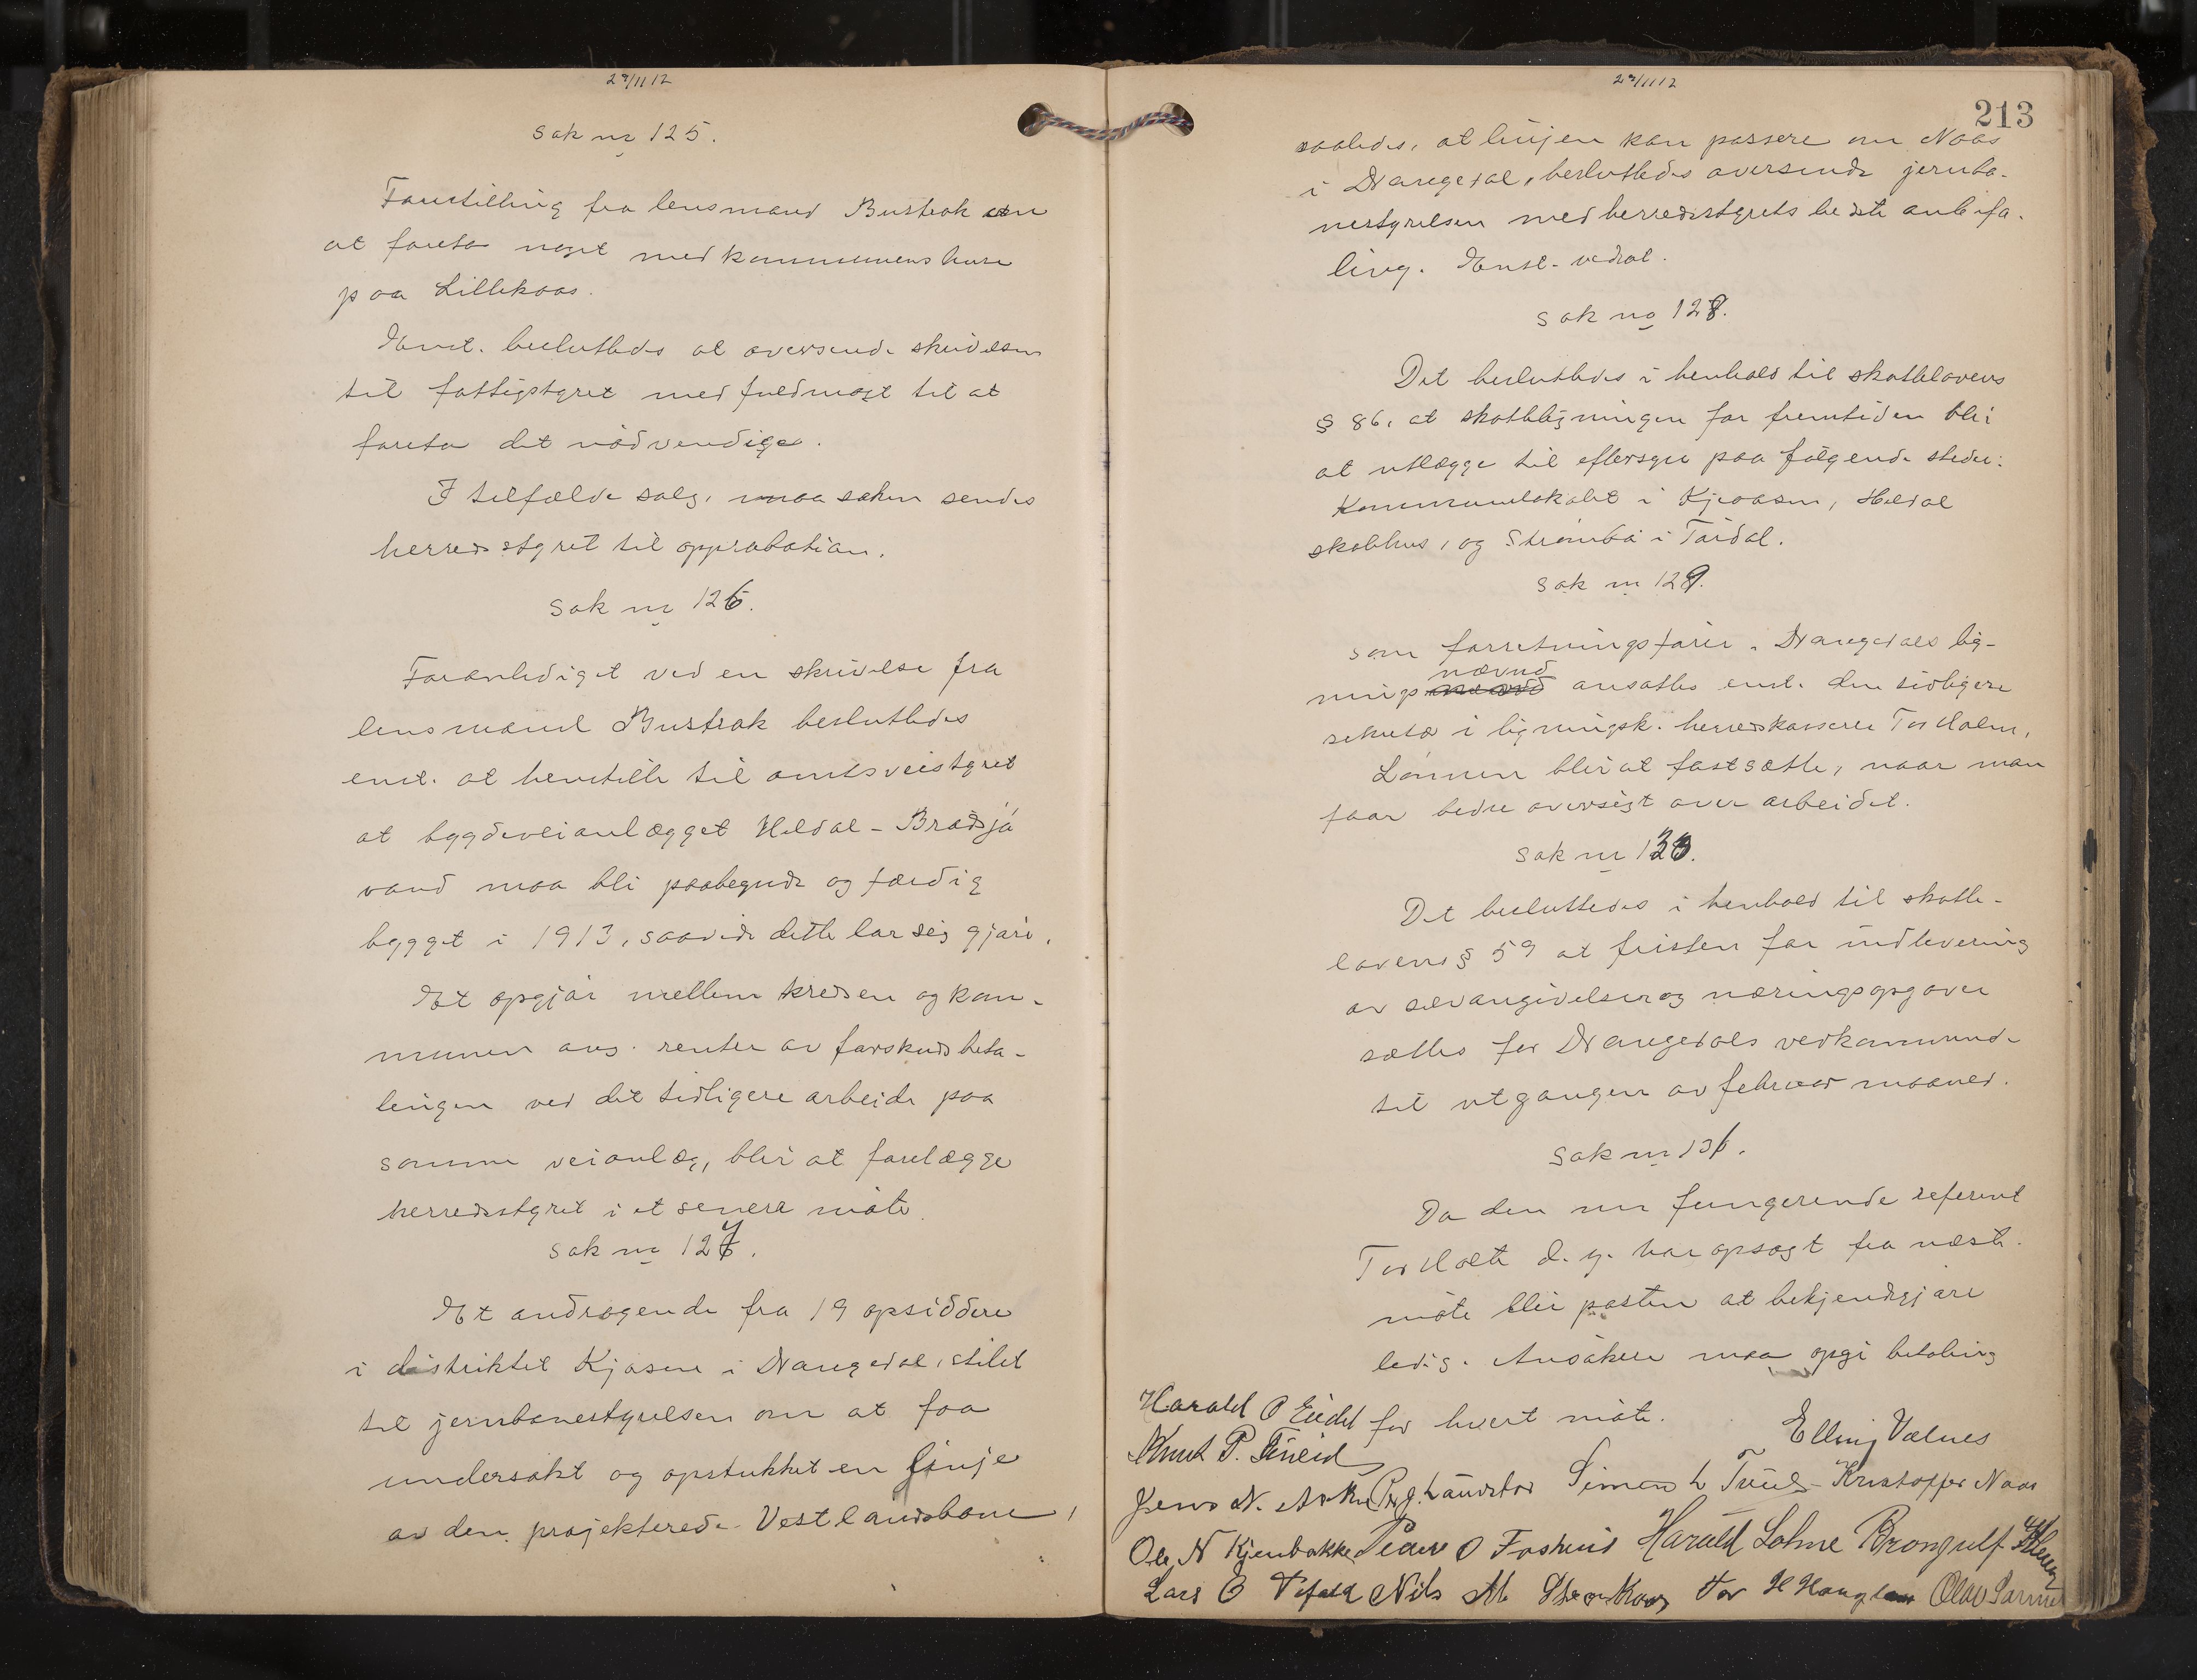 29/11 12
Sak nr 125.
Henstilling fra lensmand Bustrak om
at foreta noget med kommunens huse
paa Lillekaas.
Enst. besluttedes at oversende skrivelsen
til fattigstyret med fuldmagt til at
foreta det nødvendige.
I tilfælde salg, maa saken sendes
herredsstyret til approbation.
Sak nr 126.
Foranlediget ved en skrivelse fra
lensmand Bustrak besluttedes
enst. at henstille til amtsveistyret
at bygdeveianlægget Heldal - Bradsjø
vand maa bli paabegyndt og færdig
bygget i 1913, saavidt dette lar seg gjøre.
Et opgjør mellem kredsen og kom-
munen ang. renter av forskudsbeta-
lingen ved det tidligere arbeide paa
samme veianlæg, blir at forelægge
herredsstyret i et senere møte.
Sak nr 127.
Et andragende fra 19 opsiddere
i distriktet Kjosen i Drangedal, stilet
til jernbanestyrelsen om at faa
undersøkt og opstukket en linje
av den projekterede Vestlandsbane,
29/11 12
213
saaledes, at linjen kan passere om Naas
i Drangedal, besluttedes oversendt jernba-
nestyrelsen med herredsstyrets bedste anbefa-
ling. Enst. vedtat.
Sak no 128.
Det besluttedes i henhold til skattelovens
§ 86, at skatteligningen for fremtiden blir
at utlægge til eftersyn paa følgende steder:
Kommunelokalet i Kjeaasen, Heldal
skolehus, og Strømbø i Tørdal.
Sak nr 129.
som forretningsfører i Drangedals lig-
nings nævnd ansattes enst. den tidligere
sekretær i ligningsk. herredskasserer Tor Holm,
Lønnen blir at fastsætte, naar man
faar bedre oversigt over arbeidet.
Sak nr 130.
Det besluttedes i henhold til skatte-
lovens § 59 at fristen for indlevering
av selvangivelser og næringsopgaver
sættes for Drangedals vedkommende
til utgangen av februar maaned.
Sak nr 131.
Da den nu fungerende referent
Tor Holte d. y. har opsagt fra næste
møte blir posten at bekjendtgjøre
ledig. Ansøkere maa opgi betaling
for hvert møte.
Harald O Eidet Elling Vælnes
Knut P.
Jens N. Simen L Kristoffer Naas
Ole N Kjenbakke Peder O Foshuus Harald Lohne Brongulf
Lars O Nils M. Tor H Haugland Olav